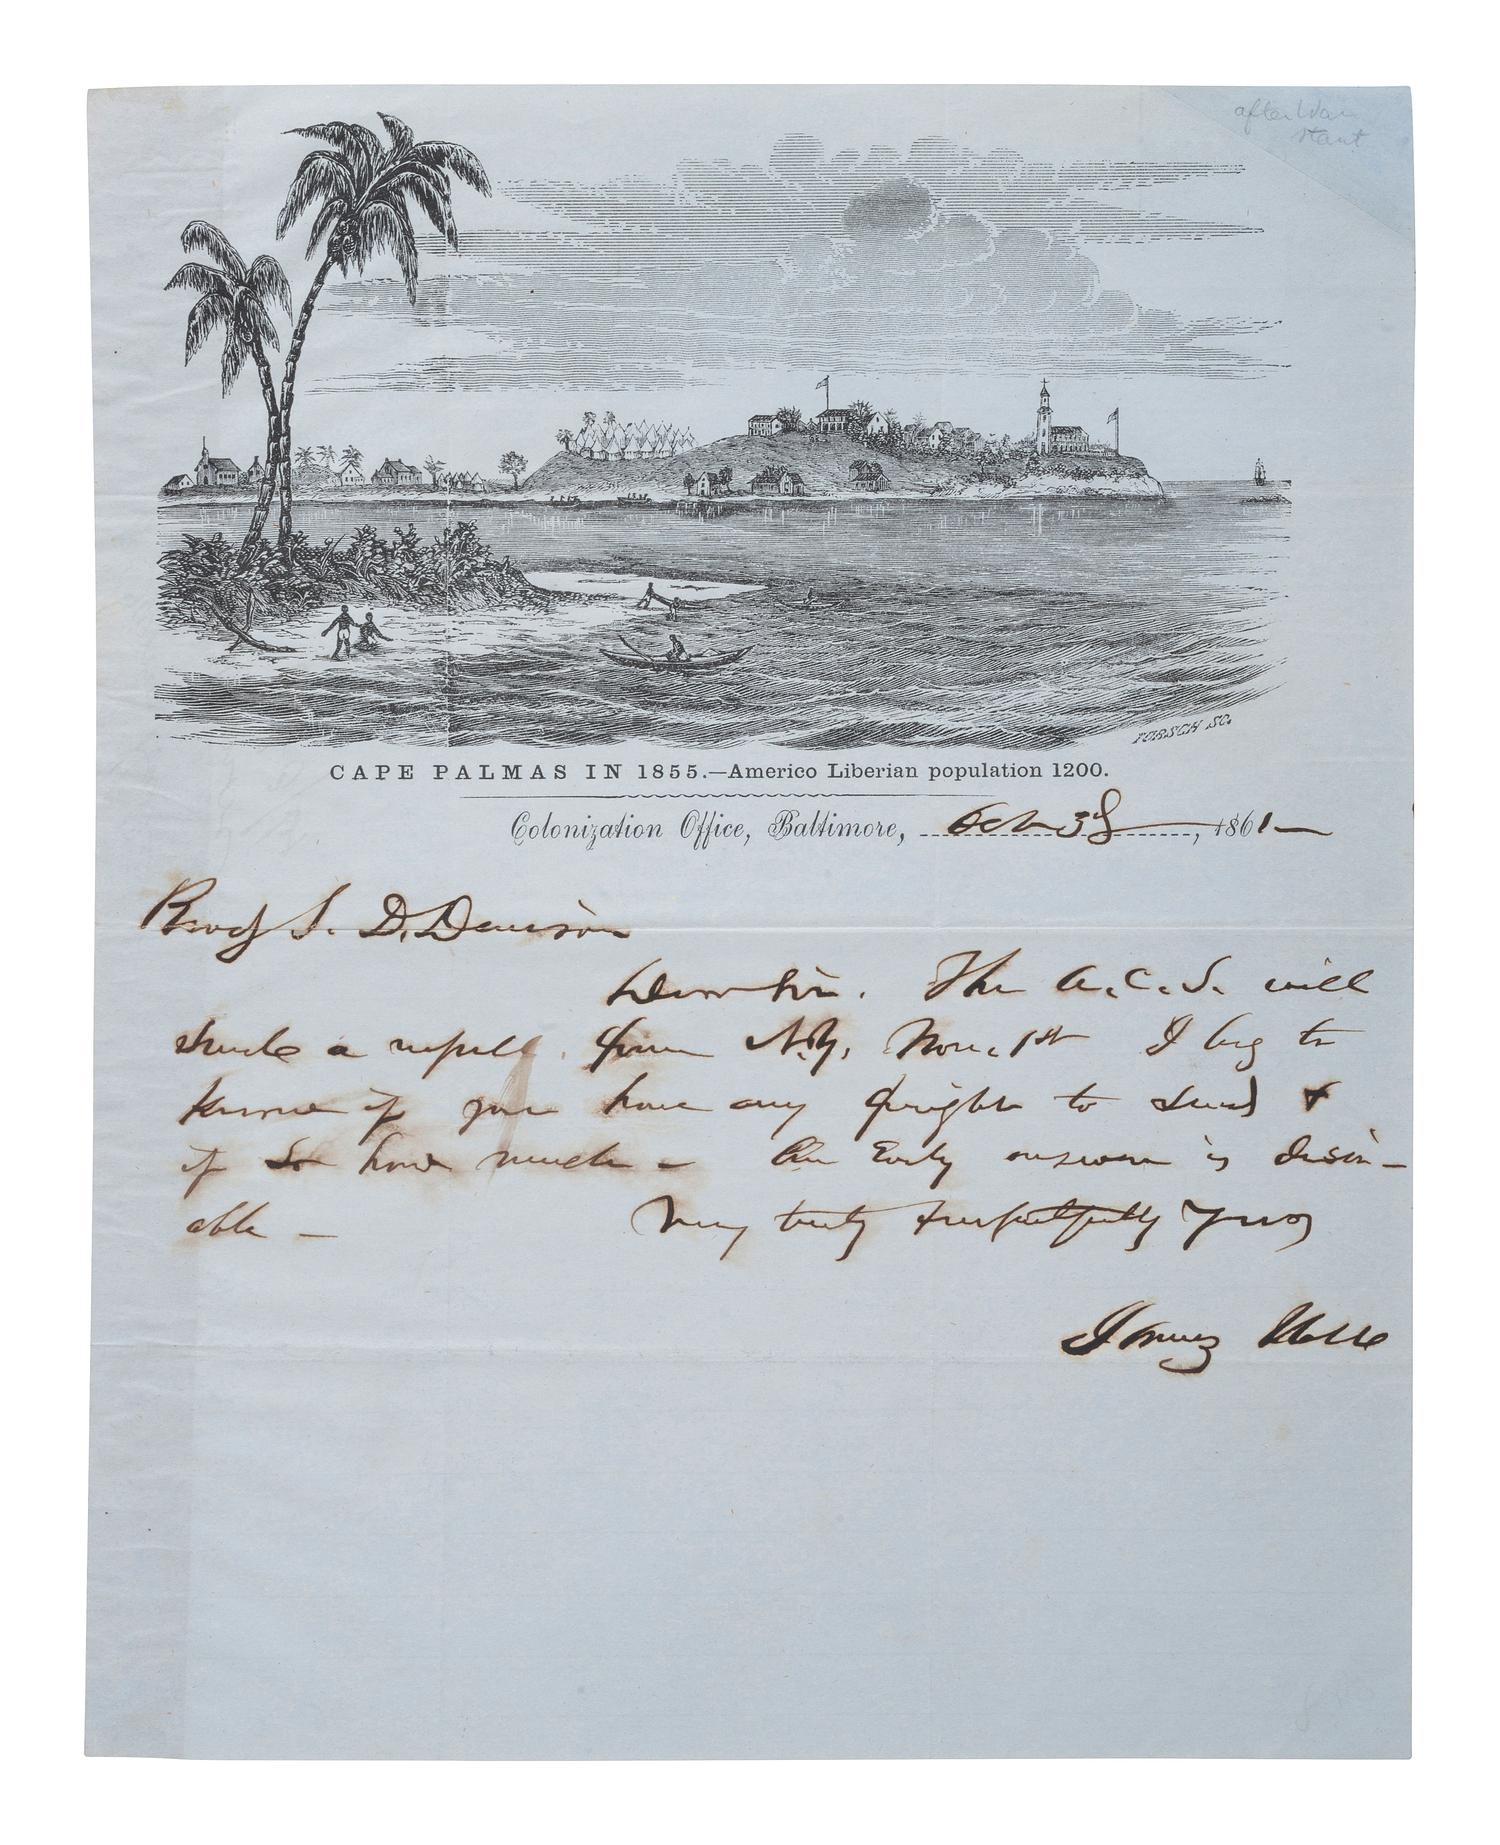 after War
start
TORSCH SC.
CAPE PALMAS IN 1855.—Americo Liberian population 1200.
Colonization Office, Baltimore, Oct 3d, 1861—
Revd S. D. Denison
Dear Sir. The A.C.S. will
send a vessel from N.Y, Nov. 1st I beg to
know if you have any freight to send &
if so how much – An Early answer is desir-
able – Very truly & respectfully Yours
James Hall